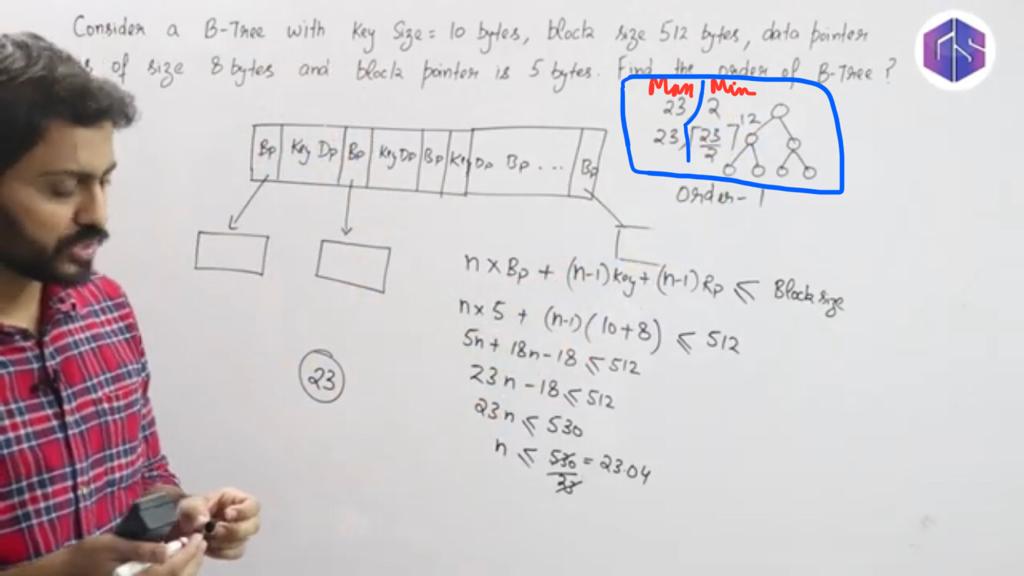 Consider a B-Tree with Key Size = 10 bytes, block size 512 bytes, data pointer
of size 8 bytes and block pointer is 5 bytes. Find the order of B-Tree ?
Man Min
23 2
23 ⌈23/2⌉ 12
Order - 1
Bp Key Dp Bp Key Dp Bp Key Dp Bp ... Bp
n x Bp + (n-1) Key + (n-1) Rp ≤ Block size
n x 5 + (n-1) (10+8) ≤ 512
5n + 18n - 18 ≤ 512
23n - 18 ≤ 512
23n ≤ 530
n ≤ 530/23 = 23.04
23